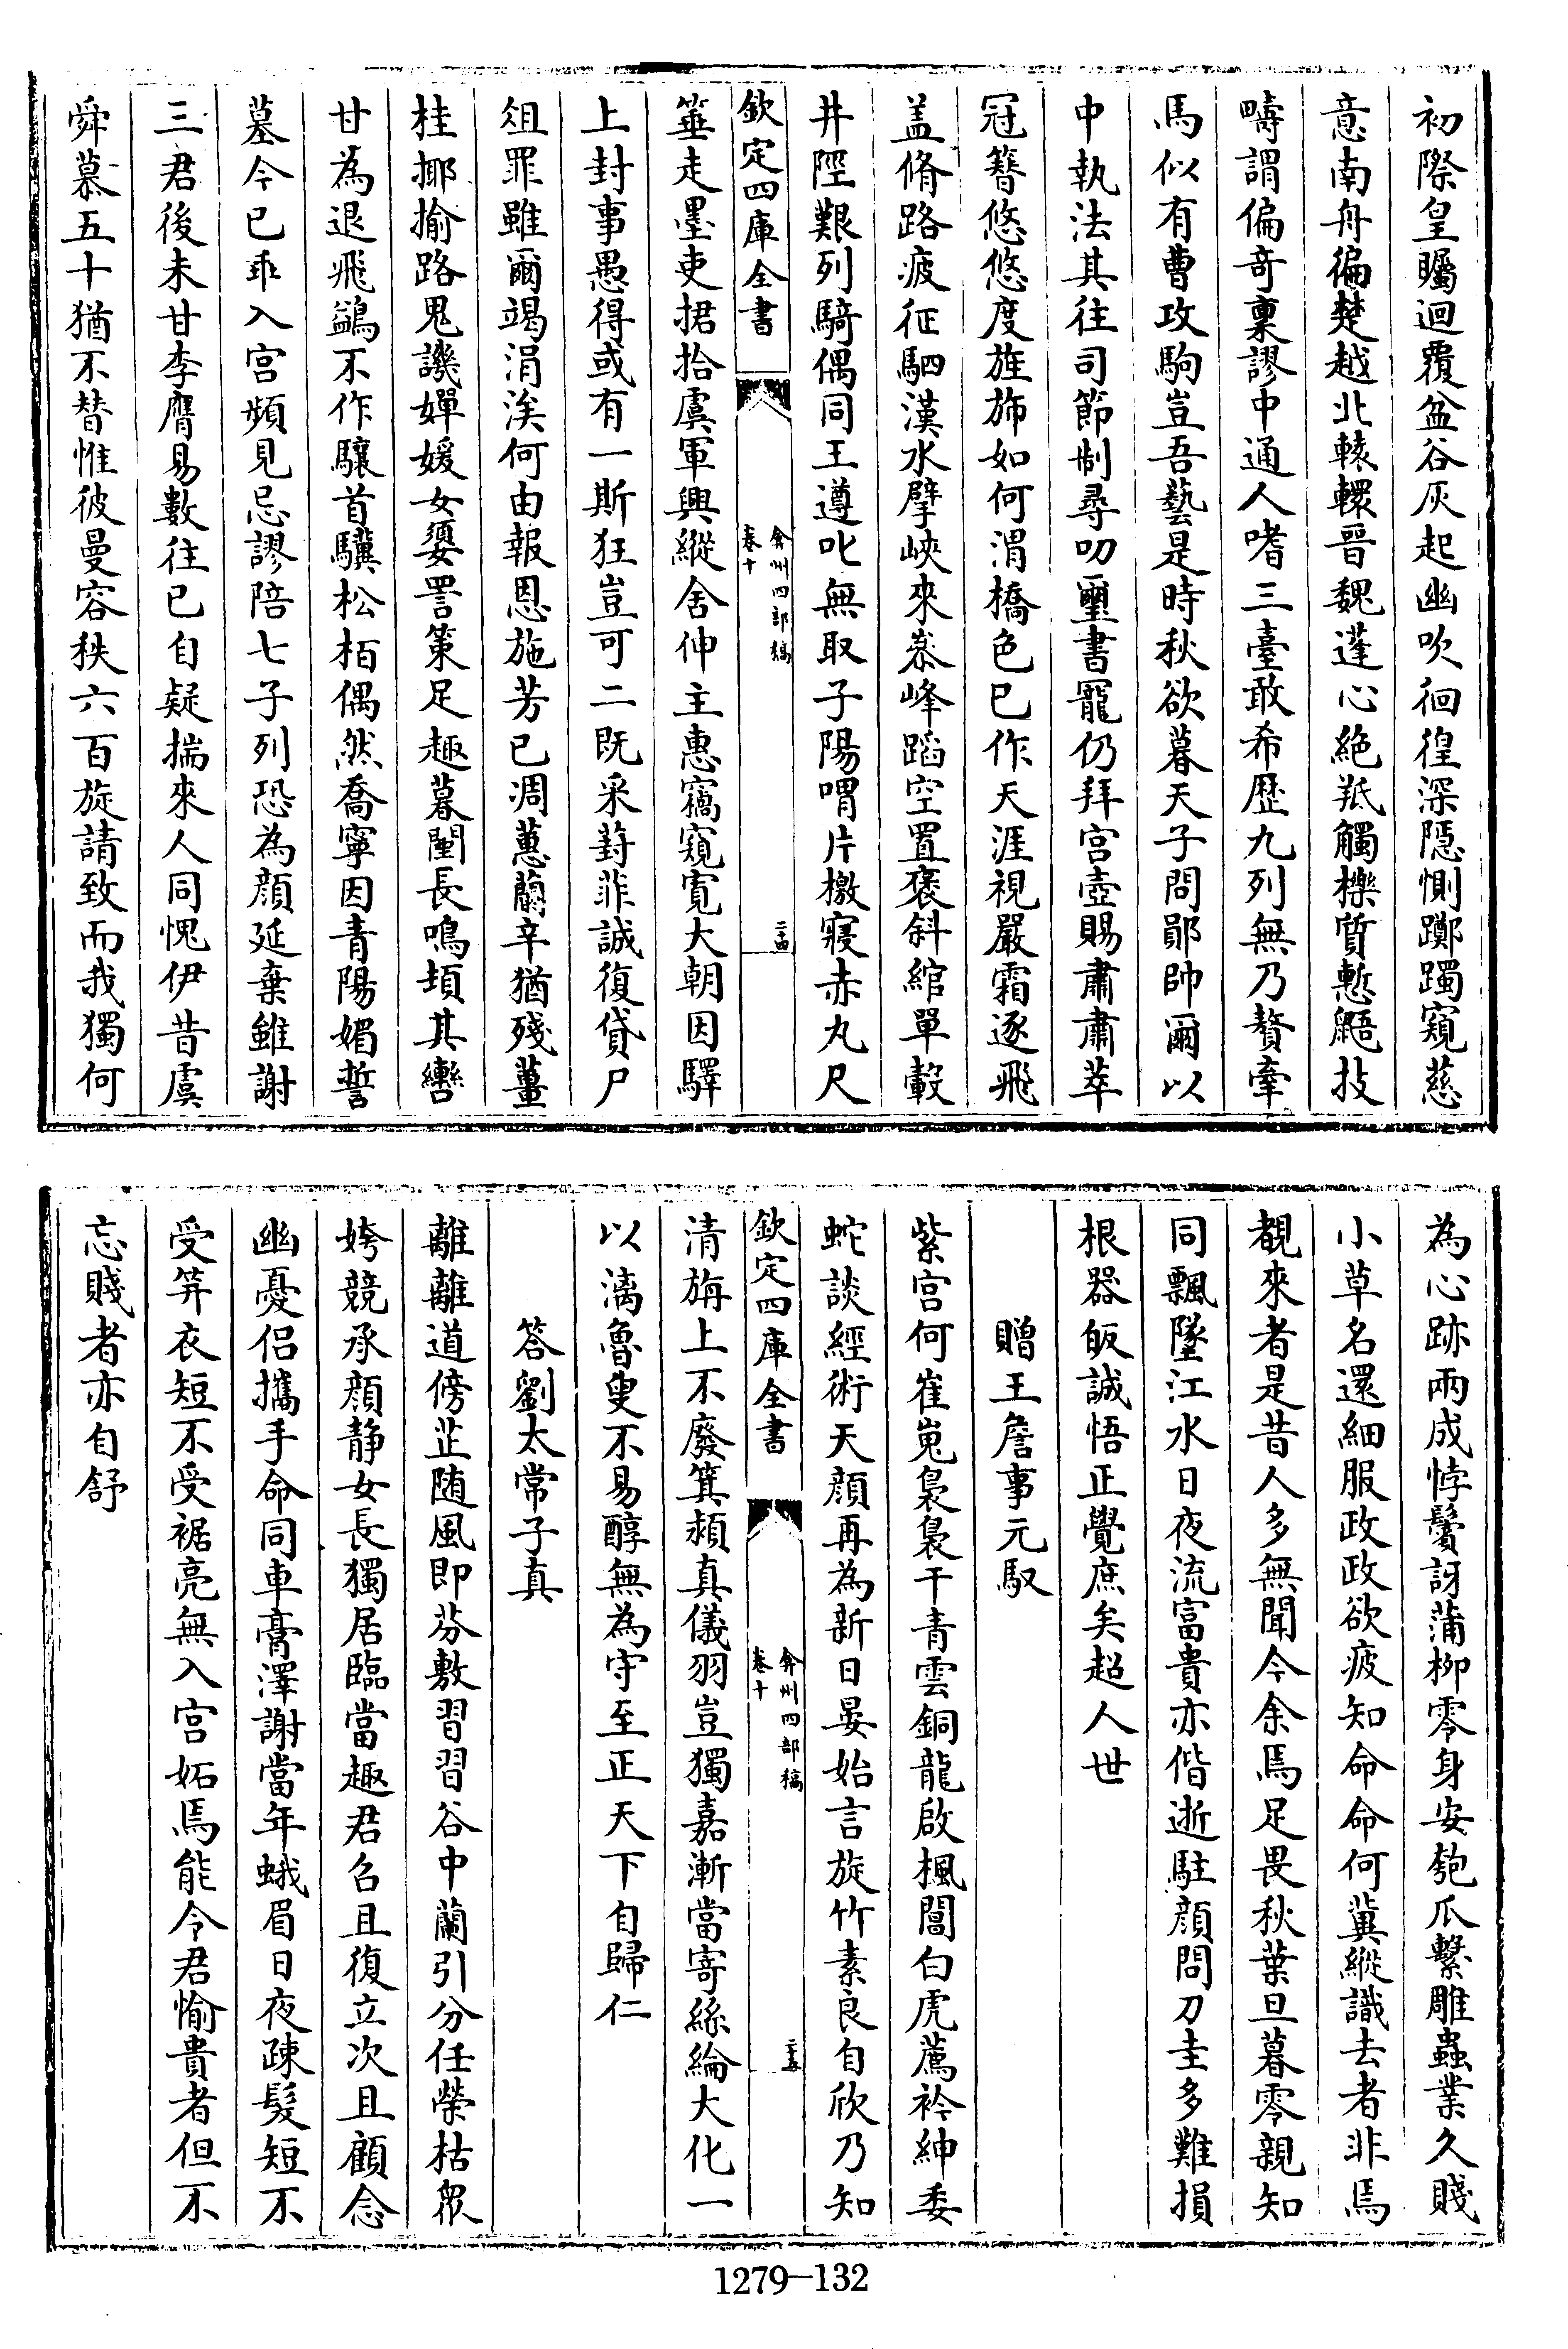 初際皇矚迴覆盆谷灰起幽吹徊徨深隱惻躑躅窺慈
意南舟徧楚越北轅轘晉魏蓬心絶羝觸櫟質慙鼯技
疇謂偏奇稟謬中通人嗜三臺敢希歴九列無乃贅牽
馬似有曹攻駒豈吾藝是時秋欲暮天子問鄖帥爾以
中執法其往司節制尋叨璽書寵仍拜宫壺賜肅肅萃
冠簪悠悠度旌斾如何渭橋色已作天涯視嚴霜逐飛
盖脩路疲征駟漢水擘峽來嵾峰蹈空置褒斜綰單轂
井陘艱列騎偶同王遵叱無取子陽喟片檄寢赤丸尺
欽定四庫全書
弇州四部稿
卷十
二十四
箠走墨吏捃拾虞軍興縱舍伸主惠竊窺寛大朝因驛
上封事愚得或有一斯狂豈可二既采葑菲誠復貸尸
俎罪雖爾竭涓涘何由報恩施芳已凋蕙蘭辛猶殘薑
桂揶揄路鬼譏嬋媛女嬃詈策足趣暮闉長鳴頓其轡
甘為退飛鷁不作驤首驥松栢偶然喬寧因青陽媚誓
墓今已乖入宫頻見忌謬陪七子列恐為顔延棄雖謝
三君後未甘李膺易數往已自疑揣來人同愧伊昔虞
舜慕五十猶不替惟彼曼容秩六百旋請致而我獨何
為心跡兩成悖鬒訝蒲柳零身安匏瓜繫雕蟲業久賤
小草名還細服政政欲疲知命命何冀縱識去者非焉
覩來者是昔人多無聞今余焉足畏秋葉旦暮零親知
同飄墜江水日夜流富貴亦偕逝駐顔問刀圭多難損
根器皈誠悟正覺庶矣超人世
贈王詹事元馭
紫宫何崔嵬裊裊干青雲銅龍啟楓閶白虎薦衿紳委
蛇談經術天顔再為新日晏始言旋竹素良自欣乃知
欽定四庫全書
弇州四部稿
卷十
二十五
清旃上不廢箕潁真儀羽豈獨嘉漸當寄絲綸大化一
以漓魯叟不易醇無為守至正天下自歸仁
答劉太常子真
離離道傍芷随風即芬敷習習谷中蘭引分任榮枯衆
姱競承顔静女長獨居臨當趣君召且復立次且顧念
幽憂侣攜手命同車膏澤謝當年蛾眉日夜疎髮短不
受笄衣短不受裾亮無入宫妬焉能令君愉貴者但不
忘賤者亦自舒
1279—132